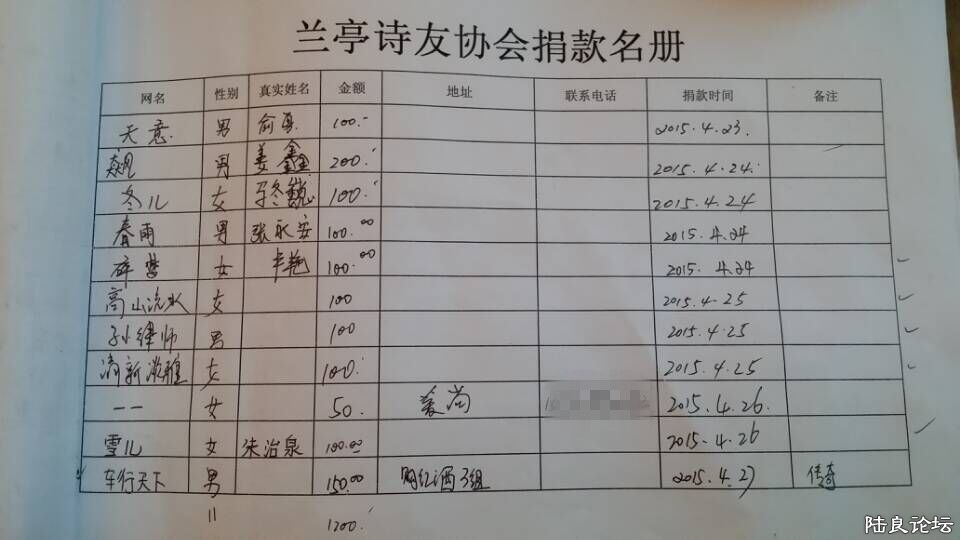 兰亭诗友协会捐款名册
网名 性别 真实姓名 金额 地址 联系电话 捐款时间 备注
天意 男 100.- 2015.4.23
飚 男 姜鑫 200. 2015.4.24.
冬儿 女 100. 2015.4.24
春雨 男 张永安 100.00 2015.4.24
碎梦 女 卞艳 100.00 2015.4.24
高山流水 女 100 2015.4.25
孙律师 男 100 2015.4.25
清新淡雅 女 100. 2015.4.25
一一 女 50. 爱尚 2015.4.26.
雪儿 女 朱治泉 100.00 2015.4.26
车行天下 男 150.00 购红酒3组 2015.4.27 传奇
11 1200.
陆良论坛